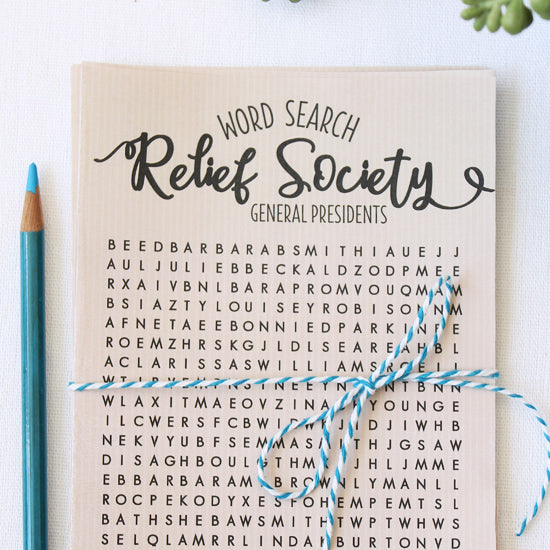 WORD SEARCH
Relief Society
GENERAL PRESIDENTS
BEEDBARBARABSMITHIAUEJJ
AULJULIEBBECKALDZODPMEE
RXAIVBNLBARAPROMVOUQMAM
BSIAZTYLOUISEYROBISONNM
AFNETAEEBONNIEDPARKINFE
ROEMZHRSKGJLDLSEAREAHBL
ACLARISSASWILLIAMSREEIL
WLAXITMAEOVZINADYOUNGE
ILCWERSFCBWIDWFJDJIWHB
NEKVYUBFSEMMASMITHJGSAW
EBBARBARAMBROWNLYMANLL
ROCPEKODYXESFOHEMPEMTSL
BATHSHEBAWSMITHTWPTWHWS
SELQLAMRRLINDAKBURTONVD